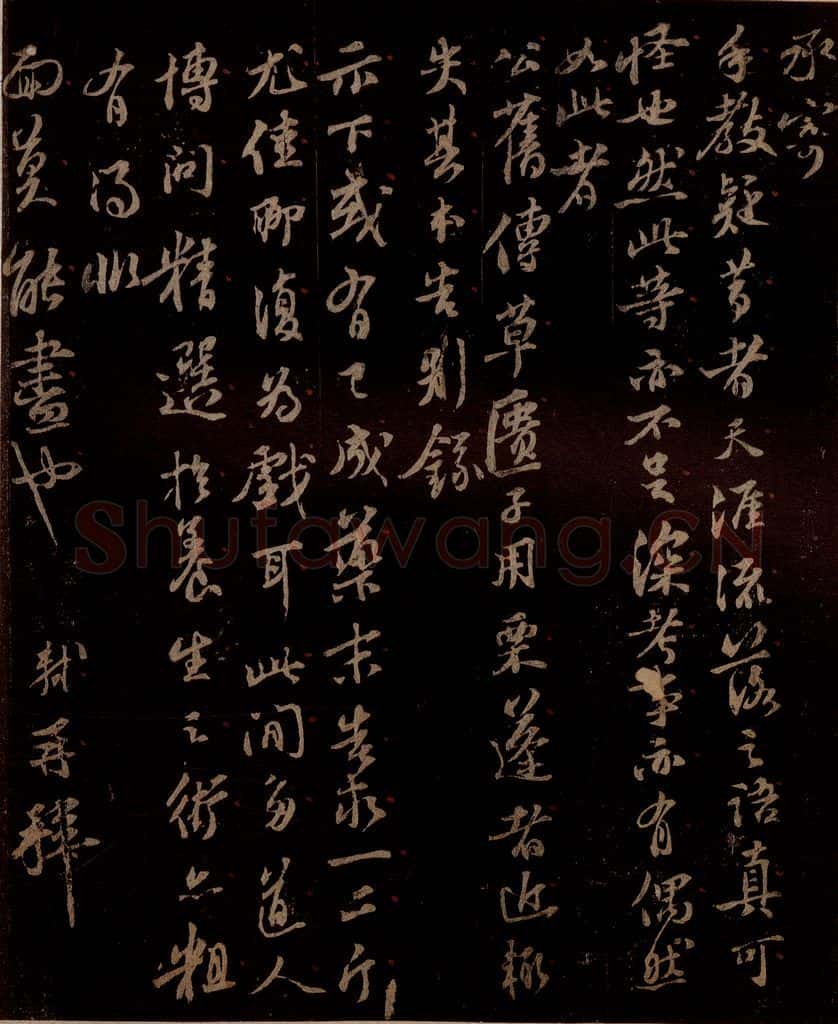 承寄
手教疑昔者天涯流落之語真可
怪也然此等亦不足深考事亦有偶然
如此者
公舊傳草匱子用栗蓬者近輒
失其本告別錄
示下或有已成藥末告求一二斤
尤佳聊復為戲耳此間多道人
博問精選於養生之術亦粗
有得恨
面莫能盡也 軾再拜
Shutawang.CN